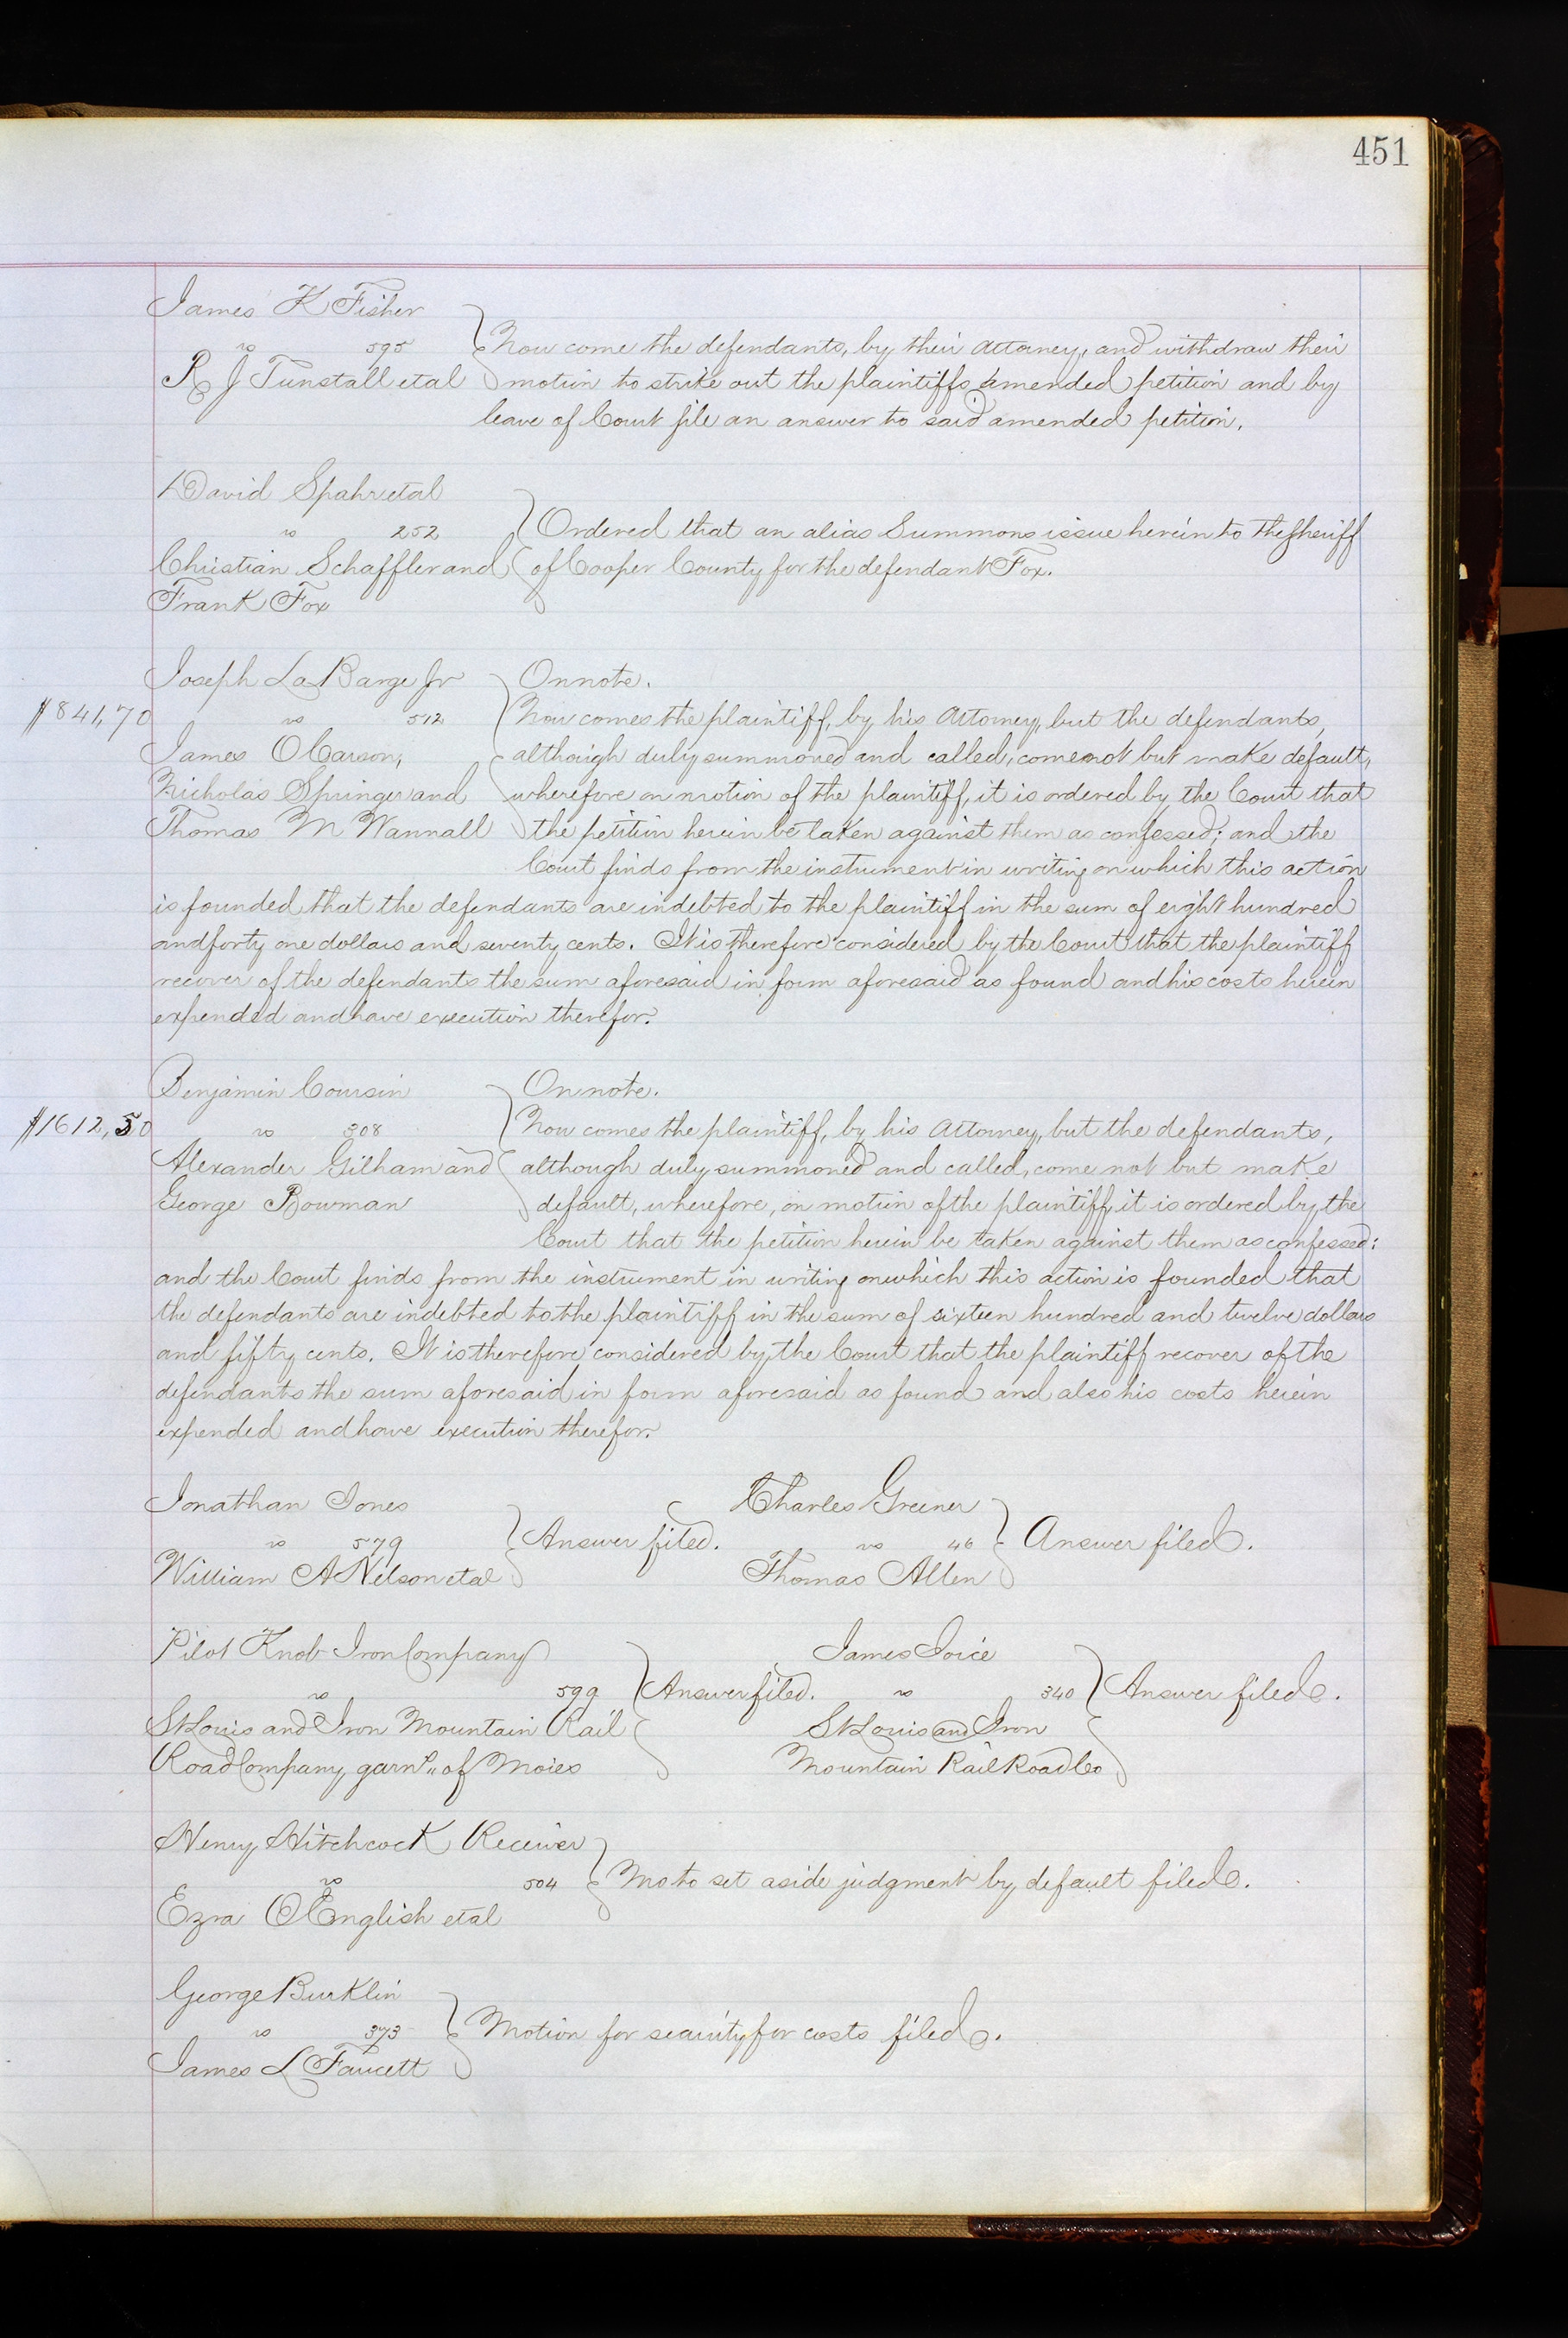 451
James K Fisher
vs 595
R J Tunstall etal
Now come the defendants, by their Attorney, and withdraw their
motion to strike out the plaintiffs amended petition and by
leave of Court file an answer to said amended petition.
David Spahr etal
vs 252
Christian Schaffler and
Frank Fox
Ordered that an alias Summons issue herein to the Sheriff
of Cooper County for the defendant Fox.
Joseph La Barge Jr
$841,70 vs 512
James O Carson,
Nicholas Springer and
Thomas M Wannall
On note.
Now comes the plaintiff, by his Attorney, but the defendants,
although duly summoned and called, come not but make default,
wherefore on motion of the plaintiff, it is ordered by the Court that
the petition herein be taken against them as confessed; and the
Court finds from the instrument in writing on which this action
is founded that the defendants are indebted to the plaintiff in the sum of eight hundred
and forty one dollars and seventy cents. It is therefore considered by the Court that the plaintiff
recover of the defendants the sum aforesaid in form aforesaid as found and his costs herein
expended and have execution therefor.
Benjamin Coursin
$1612,50 vs 308
Alexander Gilham and
George Bowman
On note.
Now comes the plaintiff, by his Attorney, but the defendants,
although duly summoned and called, come not but make
default, wherefore, on motion of the plaintiff, it is ordered by the
Court that the petition herein be taken against them as confessed:
and the Court finds from the instrument in writing on which this action is founded that
the defendants are indebted to the plaintiff in the sum of sixteen hundred and twelve dollars
and fifty cents. It is therefore considered by the Court that the plaintiff recover of the
defendants the sum aforesaid in form aforesaid as found and also his costs herein
expended and have execution therefor.
Jonathan Jones
vs 579
William A Nelson etal
Answer filed.
Charles Greener
vs 46
Thomas Allen
Answer filed.
Pilot Knob Iron Company
vs 599
St Louis and Iron Mountain Rail
Road Company, garn. of Moies
Answer filed.
James Joice
vs 340
St Louis and Iron
Mountain Rail Road Co
Answer filed.
Henry Hitchcock Receiver
vs 504
Ezra O English etal
Mo to set aside judgment by default filed.
George Burklin
vs 373
James L Faucett
Motion for security for costs filed.